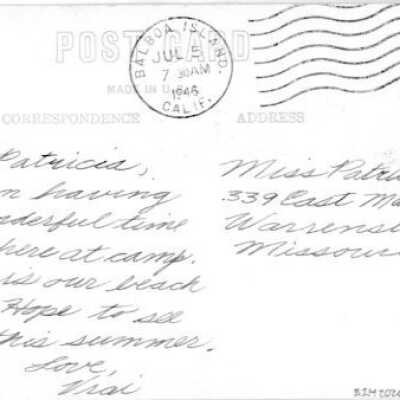 POST CARD
BALBOA ISLAND.
JUL 5
7 30 AM
1946
CALIF.
MADE IN U.
CORRESPONDENCE
ADDRESS
Patricia,
m having
nderful time
here at camp.
is our beach
Hope to see
this summer.
Love,
Miss Patri
339 East Ma
Warrensb
Missour